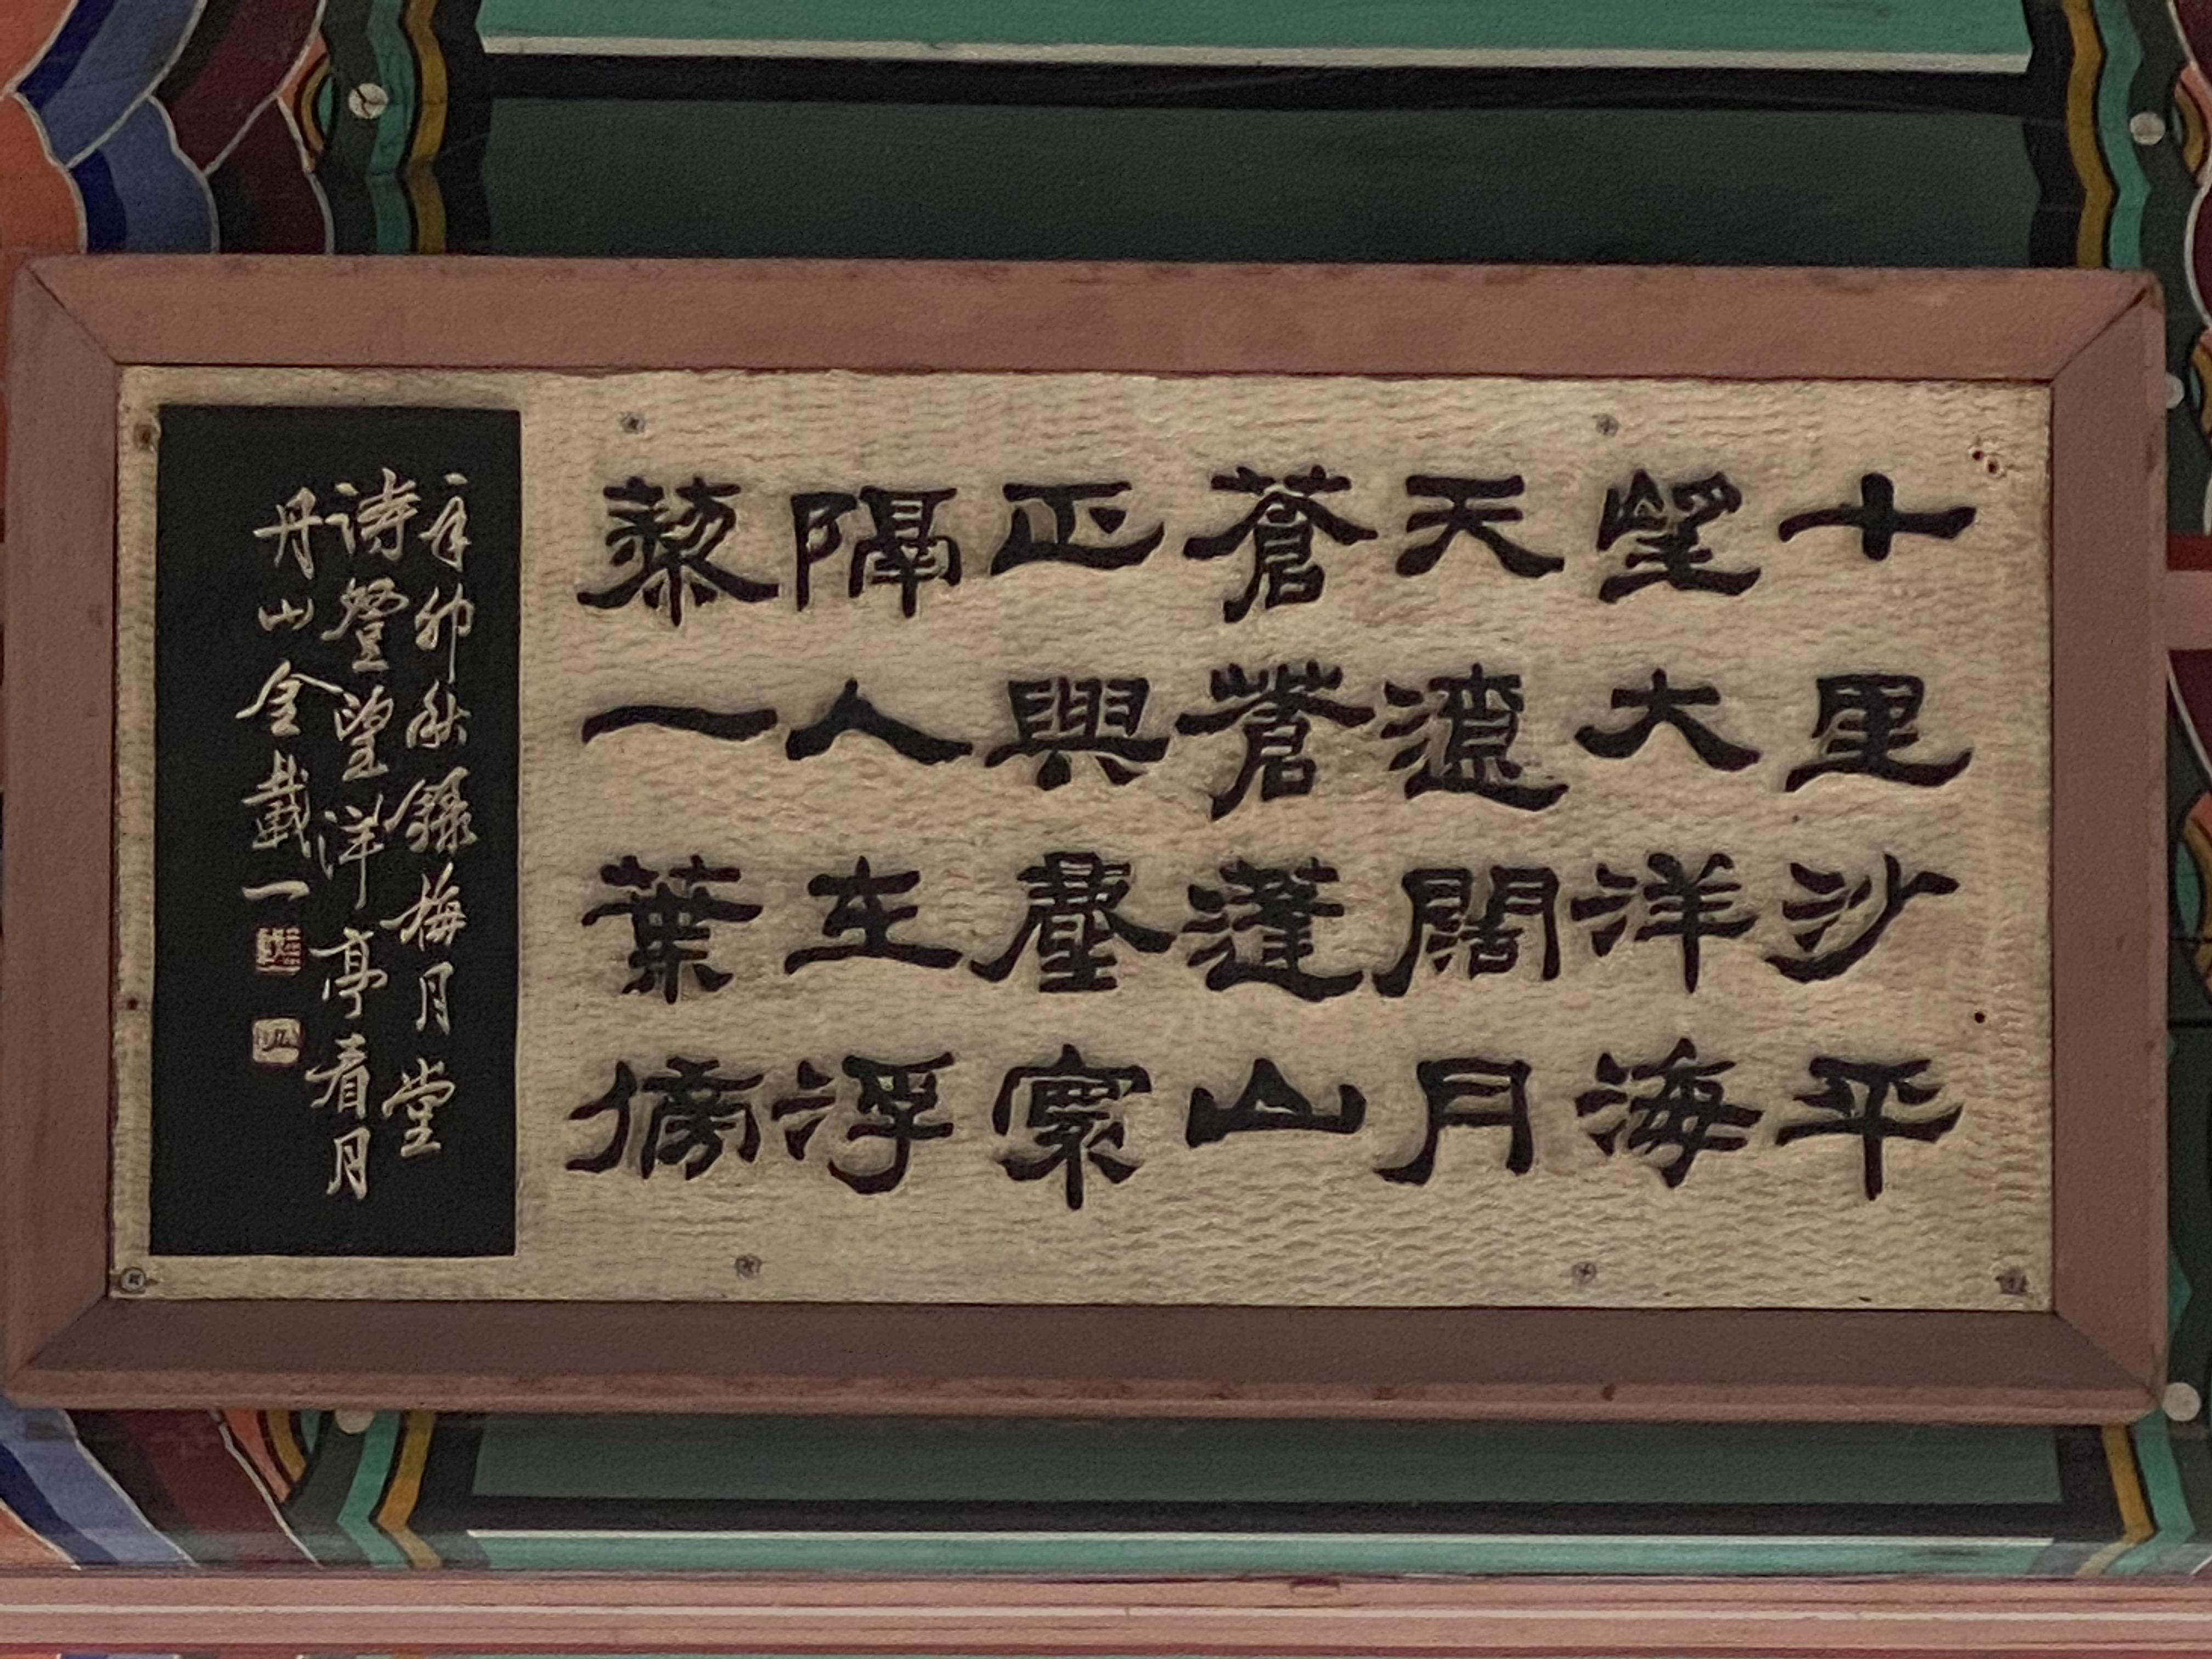 十里沙平
望大洋海
天遼闊月
蒼蒼蓬山
正與塵寰
隔人在浮
藜一葉傍
辛卯秋錄梅月堂
詩登望洋亭看月
丹山金一